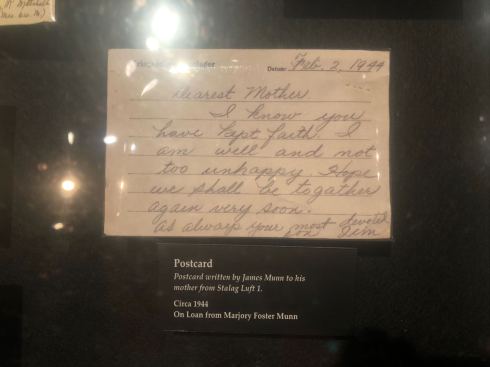 Datum: Feb. 2, 1944
Dearest Mother
I know you
have kept faith. I
am well and not
too unhappy. Hope
we shall be togather
again very soon.
As always your most devoted
son Jim
Postcard
Postcard written by James Munn to his
mother from Stalag Luft 1.
Circa 1944
On Loan from Marjory Foster Munn